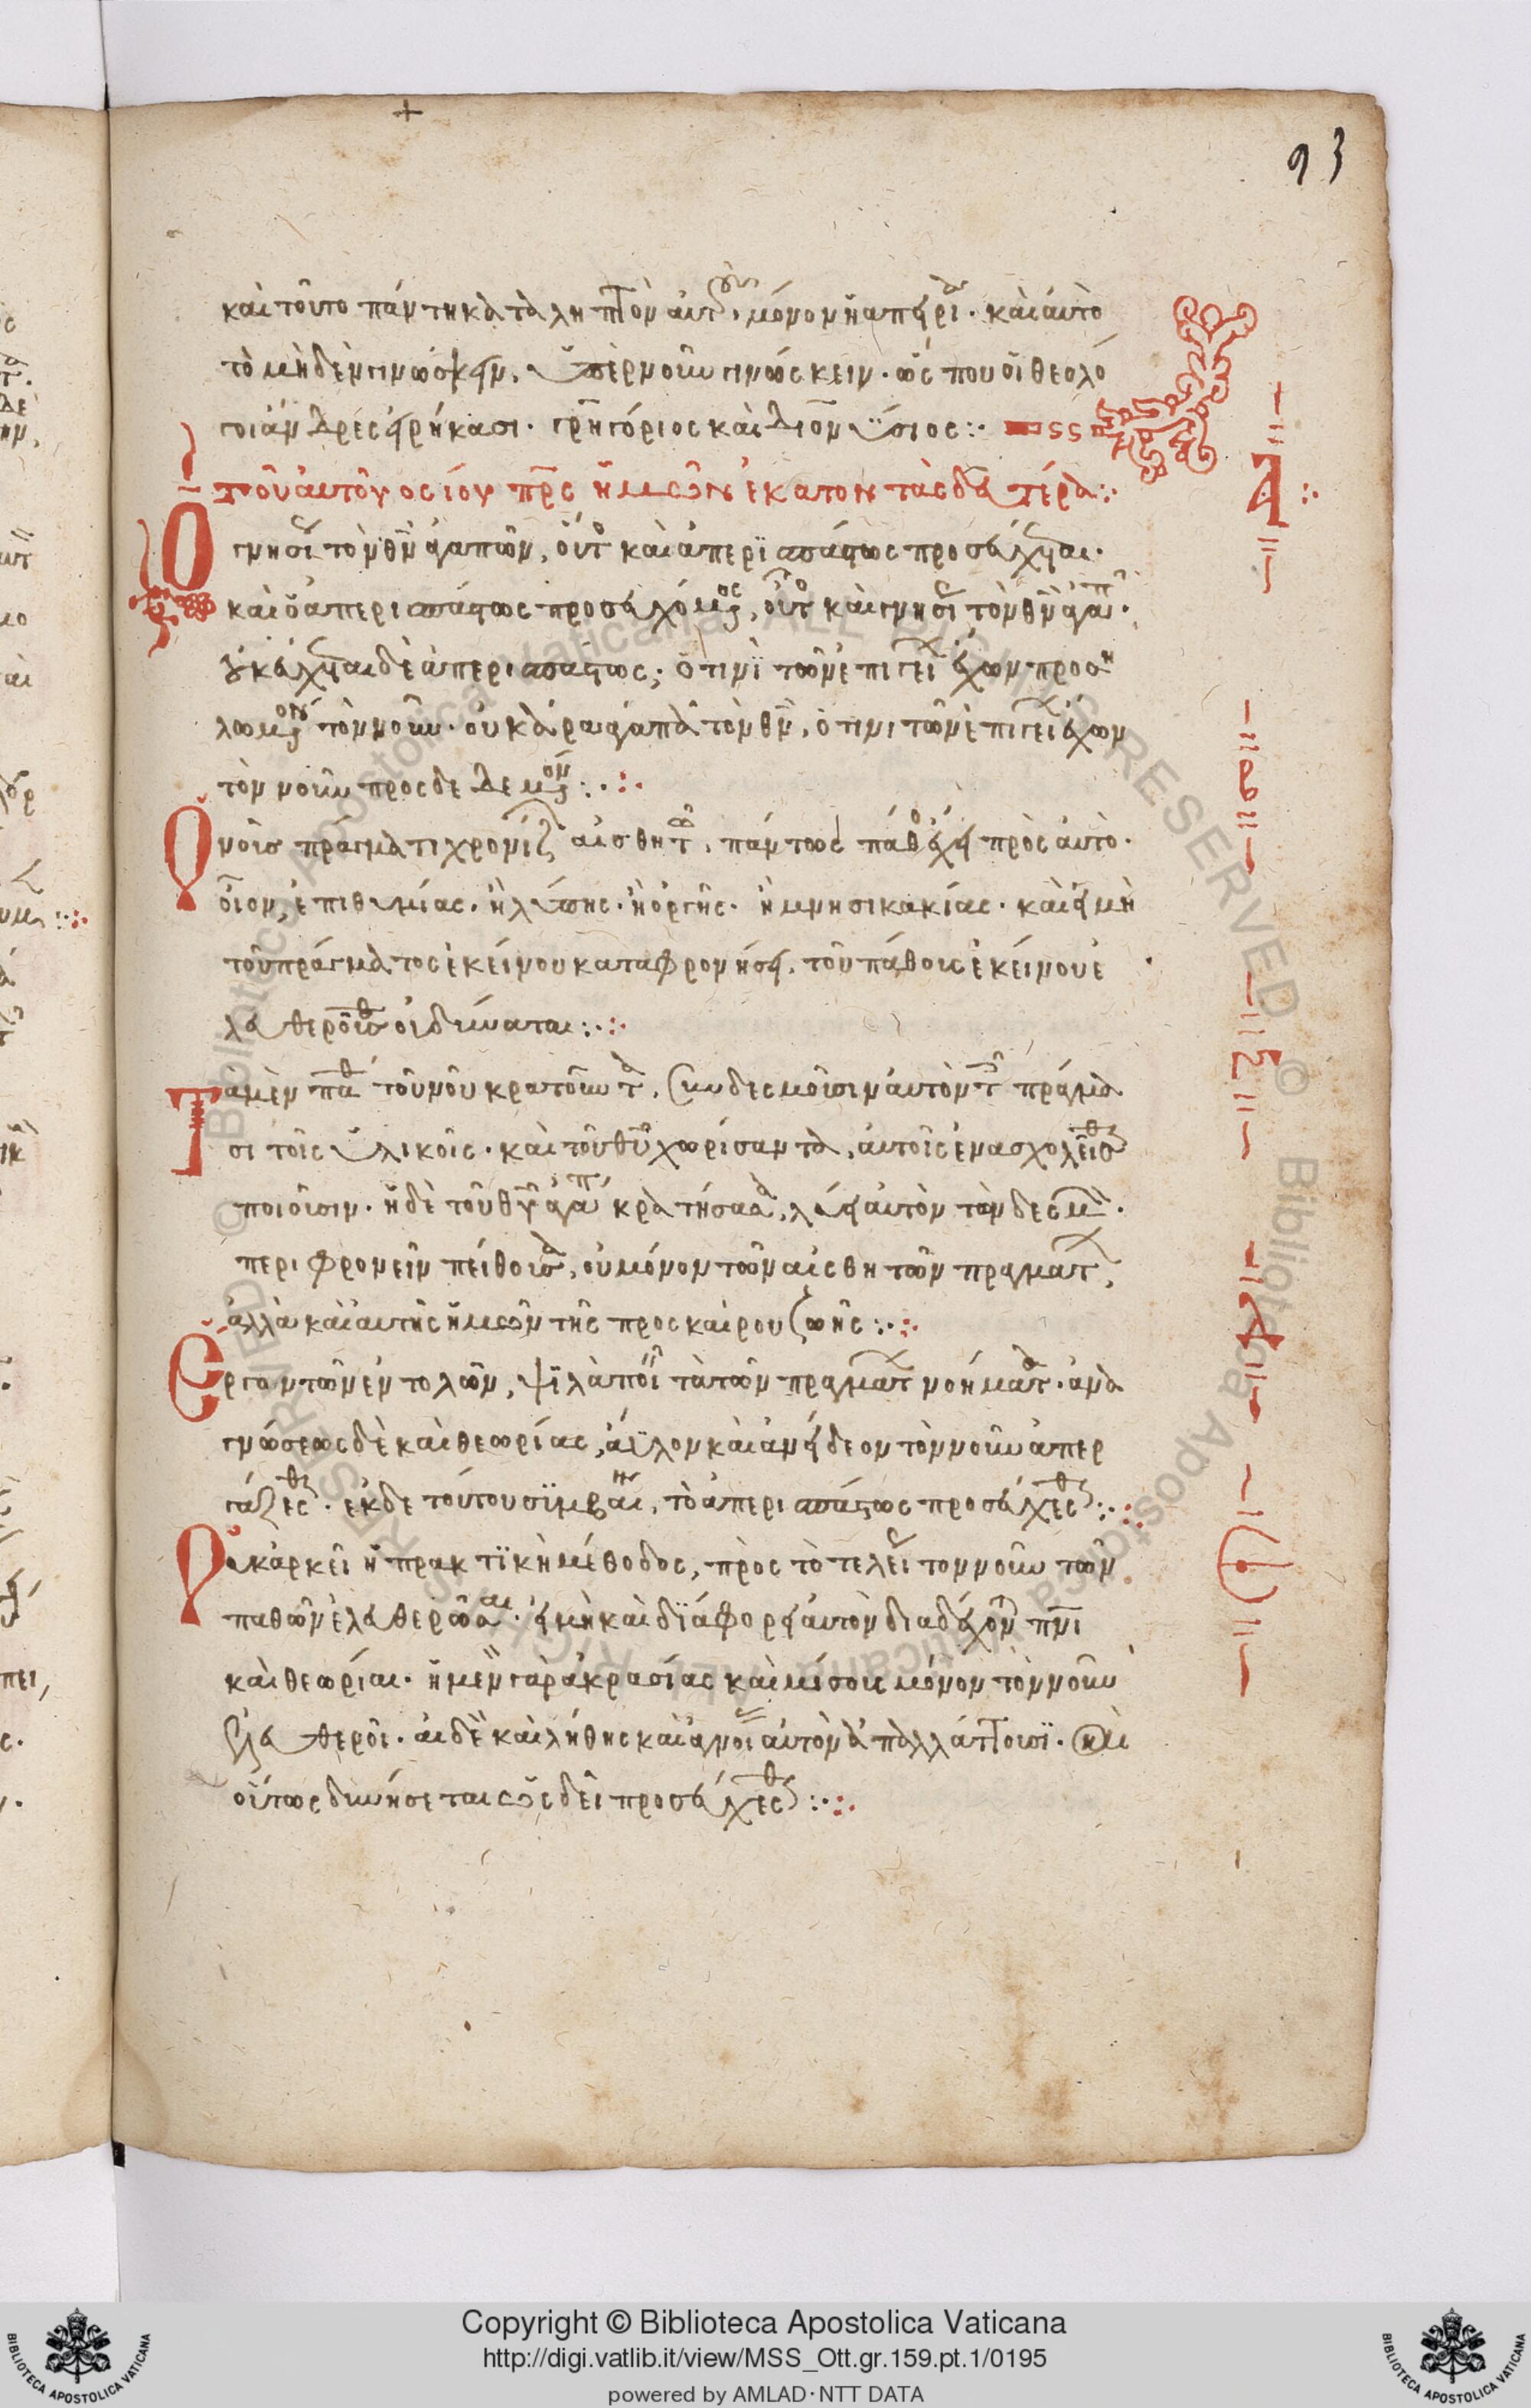 93
καὶ τοῦτο πάντη καταληπτὸν αὐτοῦ μόνον ἡ ἀπειρία· καὶ αὐτὸ
τὸ μηδὲν γινώσκειν, ὑπὲρ νοῦν γινώσκειν· ὥς που οἱ θεολό
γοι ἄνδρες εἰρήκασι· γρηγόριος καὶ διονύσιος :·
τοῦ αὐτοῦ ὁσίου πρς ἡμῶν ἑκατοντὰς δευτέρα :·
Ὁ γνησίως τὸν θν ἀγαπῶν, οὗτος καὶ ἀπερισπάστως προσεύχεται·
καὶ ὁ ἀπερισπάστως προσευχόμενος, οὗτος καὶ γνησίως τὸν θν ἀγαπᾶ·
οὐκ εὔχεται δὲ ἀπερισπάστως, ὁ τινὶ τῶν ἐπιγείων ἔχων προση
λωμένον τὸν νοῦν· οὐκ ἄρα ἀγαπᾶ τὸν θν, ὁ τινι τῶν ἐπιγείων ἔχων
τὸν νοῦν προσδεδεμένον :·
Ὁ νοῦς πράγματι χρονίζων αἰσθητῶ, πάντως πάθος ἔχει πρὸς αὐτὸ·
οἷον, ἐπιθυμίας· ἢ λύπης· ἢ ὀργῆς· ἢ μνησικακίας· καὶ εἰ μὴ
τοῦ πράγματος ἐκείνου καταφρονήσει, τοῦ πάθους ἐκείνου ἐ
λευθερωθῆναι οὐ δύναται :·
Τὰ μὲν πάθη τοῦ νοῦ κρατοῦντα, συνδεσμοῦσιν αὐτὸν τοῖς πράγμα
σι τοῖς ὑλικοῖς· καὶ τοῦ θυ χωρίσαντα, αὐτοῖς ἐνασχολεῖσθαι
ποιοῦσιν· ἡ δὲ τοῦ θυ ἀγάπη κρατήσασα, λύει αὐτὸν τῶν δεσμῶν·
περιφρονεῖν πείθουσα, οὐ μόνον τῶν αἰσθητῶν πραγμάτων,
ἀλλὰ καὶ αὐτῆς ἡμῶν τῆς προσκαίρου ζωῆς :·
Ἔργον τῶν ἐντολῶν, ψιλὰ ποιεῖν τὰ τῶν πραγμάτων νοήματα· ἀνα
γνώσεως δὲ καὶ θεωρίας, ἄϋλον καὶ ἀνείδεον τὸν νοῦν ἀπερ
γάζεσθαι· ἐκ δὲ τούτου συμβαίνει, τὸ ἀπερισπάστως προσεύχεσθαι :·
Οὐκ ἀρκεῖ ἡ πρακτικὴ μέθοδος, πρὸς τὸ τελείως τὸν νοῦν τῶν
παθῶν ἐλευθερῶσαι· εἰ μὴ καὶ διάφοροι αὐτὸν διαδέχονται πνικαὶ
καὶ θεωρίαι· ἡ μὲν γὰρ ἀκρασίας καὶ μίσους μόνον τὸν νοῦν
ἐλευθεροῖ· αἱ δὲ καὶ λήθης καὶ ἀγνοίας αὐτὸν ἀπαλλάττουσι· καὶ
οὕτως δυνήσεται ὡς δεῖ προσεύχεσθαι :·
Copyright © Biblioteca Apostolica Vaticana
http://digi.vatlib.it/view/MSS_Ott.gr.159.pt.1/0195
powered by AMLAD·NTT DATA